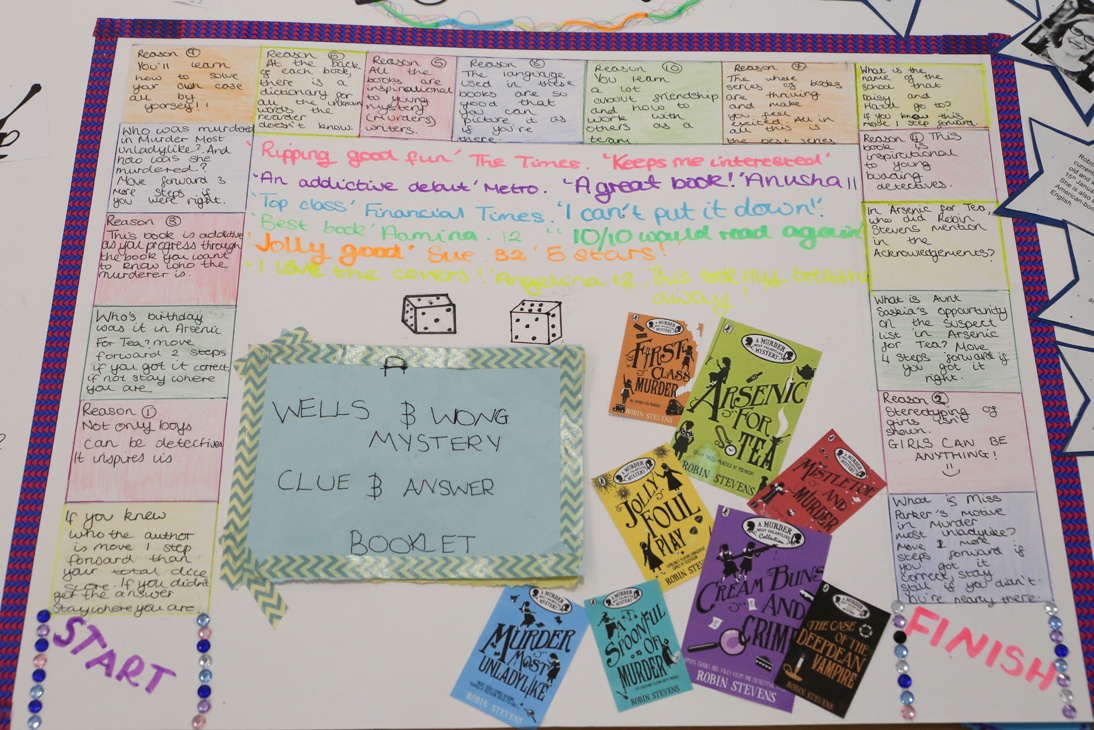 Reason ⑨
You'll learn
how to solve
your own case
all by
yorself!!
Reason ⑥
At the back
of each book
there is a
dictionary for
all the unknown
words the
reader
doesn't know.
Reason ⑤
All the
books are
inspirational
to young
mystery
(murders)
writers.
Reason ⑧
The language
used in these
books are so
good that
you can
picture it as
if you're
there.
Reason ⑩
You learn
a lot
about friendship
and how to
work with
others as a
team
Reason ⑦
The whole
series of books
are thrilling
and make
you feel
excited. All in
all this is
the best series.
What is the
name of the
school that
Daisy and
Hazel go to?
If you knew this
move 1 step forward
Who was murdered
in Murder Most
Unladylike? And
how was she
murdered?
Move forward 3
more steps if
you were right.
Reason ③
This book is addictive
as you progress through
the book you want
to know who the
murderer is.
Who's birthday
was it in Arsenic
For Tea? move
forward 2 steps
if you got it correct,
if not stay where
you are
Reason ①
Not only boys
can be detectives
It inspires us
If you knew
who the author
is move 1 step
forward than
your total dice
score. If you didn't
get the answer
stay where you are.
START
'Ripping good fun' The Times. 'Keeps me interested'
'An addictive debut' Metro. 'A great book!' Anusha 11
'Top class' Financial Times. 'I can't put it down!'
'Best book' Aamina. 12 '10/10 would read again'
'Jolly good' Sue. 32 '5 stars'
'I love the covers!' Angelina 12 This took my breath
away!
WELLS & WONG
MYSTERY
CLUE & ANSWER
BOOKLET
A MURDER
MOST UNLADYLIKE
MYSTERY
FIRST
CLASS
MURDER
ROBIN STEVENS
A MURDER
MOST UNLADYLIKE
MYSTERY
ARSENIC
FOR
TEA
ROBIN STEVENS
JOLLY
FOUL
PLAY
ROBIN STEVENS
MISTLETOE
AND
MURDER
ROBIN STEVENS
A MURDER
MOST UNLADYLIKE
Collection
CREAM BUNS
AND
CRIME
ROBIN STEVENS
MURDER
MOST
UNLADYLIKE
ROBIN STEVENS
A
SPOONFUL
OF
MURDER
ROBIN STEVENS
THE CASE
OF THE
DEEPDEAN
VAMPIRE
ROBIN STEVENS
Reason ④ This
book is
inspirational
to young
budding
detectives.
In Arsenic for Tea,
who did Robin
Stevens mention
in the
Acknowledgements?
What is Aunt
Saskia's oppurtunity
on the suspect
list in Arsenic
for Tea? Move
4 steps forward if
you got it
right.
Reason ②
Stereotyping of
girls isn't
shown.
GIRLS CAN BE
ANYTHING!
What is Miss
Parker's motive
in Murder
most unladylike?
Move 2 more
steps forward if
you got it
correct, stay
still if you didn't.
You're nearly there.
FINISH